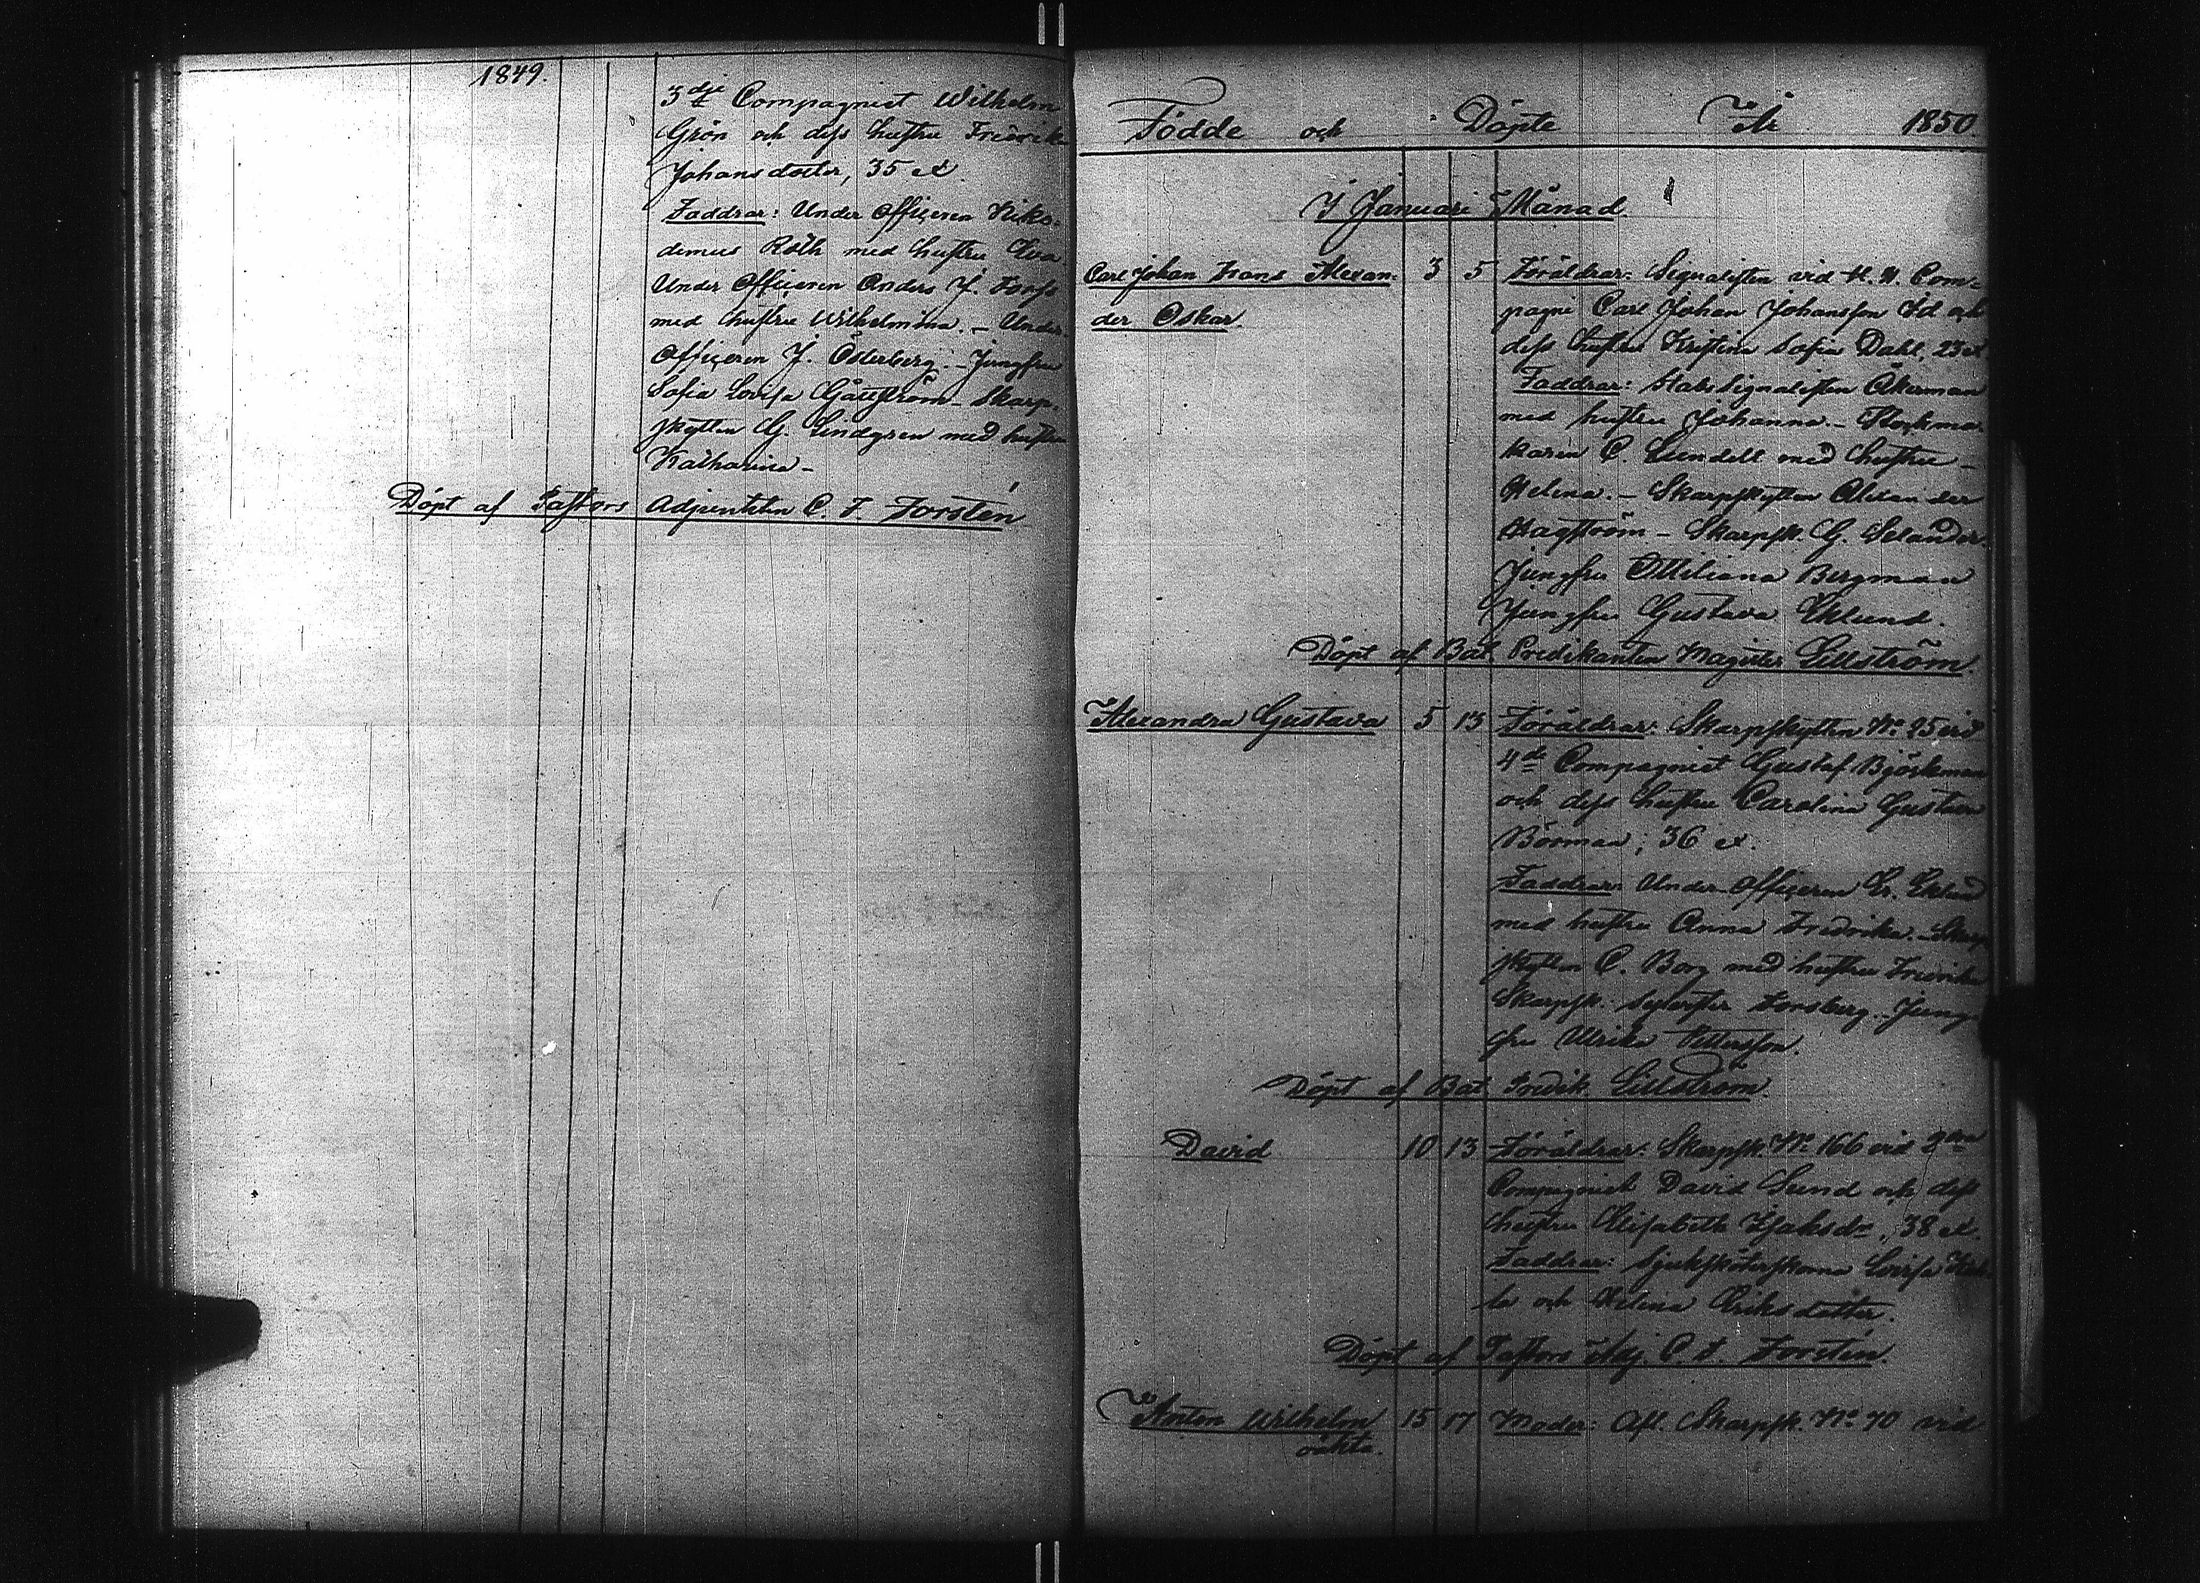 1849.
3dje Compagniet Wilhelm
Grön och dess hustru Fredrika
Johansdotter, 35 et.
Faddrar: Under Officeren Niko-
demus Roth med hustru Eva
Under Officeren Anders J. Forss
med hustru Wilhelmina. – Under
Officeren J. Österberg. – Jungfru
Sofia Lovisa Gåttström – Skarp-
skytten G. Lindgren med hustru
Katharina –
Döpt af Pastors Adjunkten C. F. Forstén
Födde och Döpte År 1850.
I Januari Månad.
Carl Johan Frans Alexan- 3 5 Föräldrar: Signalisten vid Com-
der Oskar.
pagni Carl Johan Johansson Id och
dess hustru Kristina Sofia Dahl, 23 et.
Faddrar: Stabs Signalisten Åkerman
med hustru Johanna. – Klockma-
karen C. Lundell med hustru –
Helena. – Skarpskytten Alexander
Hagström – Skarpsk. G. Selander.
Jungfru Ottiliana Bergman
Jungfru Gustava Eklund.
Döpt af Bat. Predikanten Magister Lillström.
Alexandra Gustava 5 13 Föräldrar: Skarpskytten No 25 vid
4de Compagniet Gustaf Björkman
och dess hustru Carolina Gustava
Börman, 36 et.
Faddrar: Under Officeren Gr. Eklund
med hustru Anna Fredrika. – Skarp-
skytten C. Borg med hustru Fredrika
Skarpsk. Sylvester Forsberg. – Jung-
fru Ulrika Pettersson.
Döpt af Bat. Predik. Lillström.
David 10 13 Föräldrar: Skarpsk. No 166 vid 2dra
Compagniet David Lund och dess
hustru Elisabeth Isaksdr, 38 et.
Faddrar: Sjuksköterskorna Lovisa
och Helena Eriksdotter.
Döpt af Pastors Adj. C. F. Forstén.
Anton Wilhelm 15 17 Moder: Afl. Skarpsk. No 70 vid
oäkta.